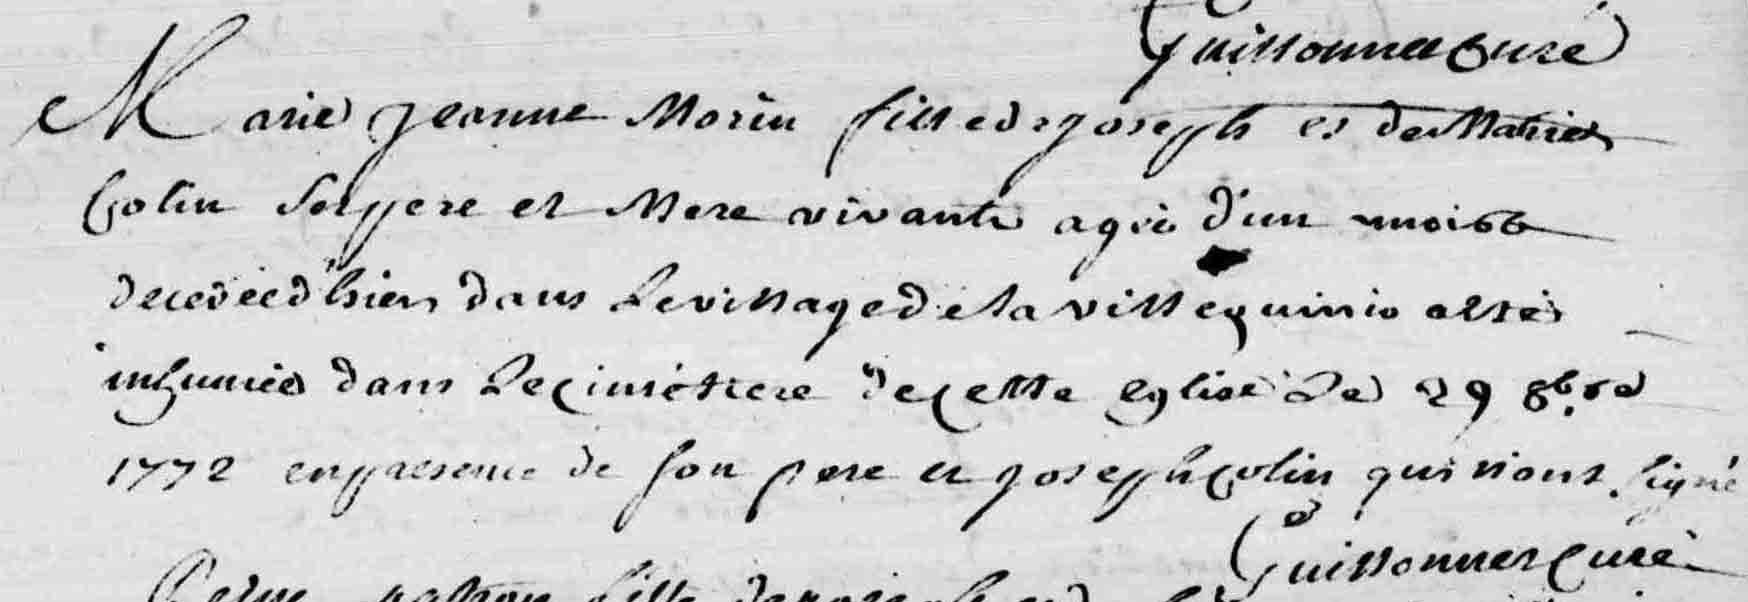 Guillonnet Curé
Marie Jeanne Morin fille de Joseph et de Mathie
Colin ses pere et Mere vivants agée d'un mois
decedée d'hier dans le village de la ville quinio a eté
inhumée dans le cimétiere de cette eglise le 29 8b.re
1772 en presence de son pere et Joseph Colin qui n'ont signé
Guillonnet Curé
fille de